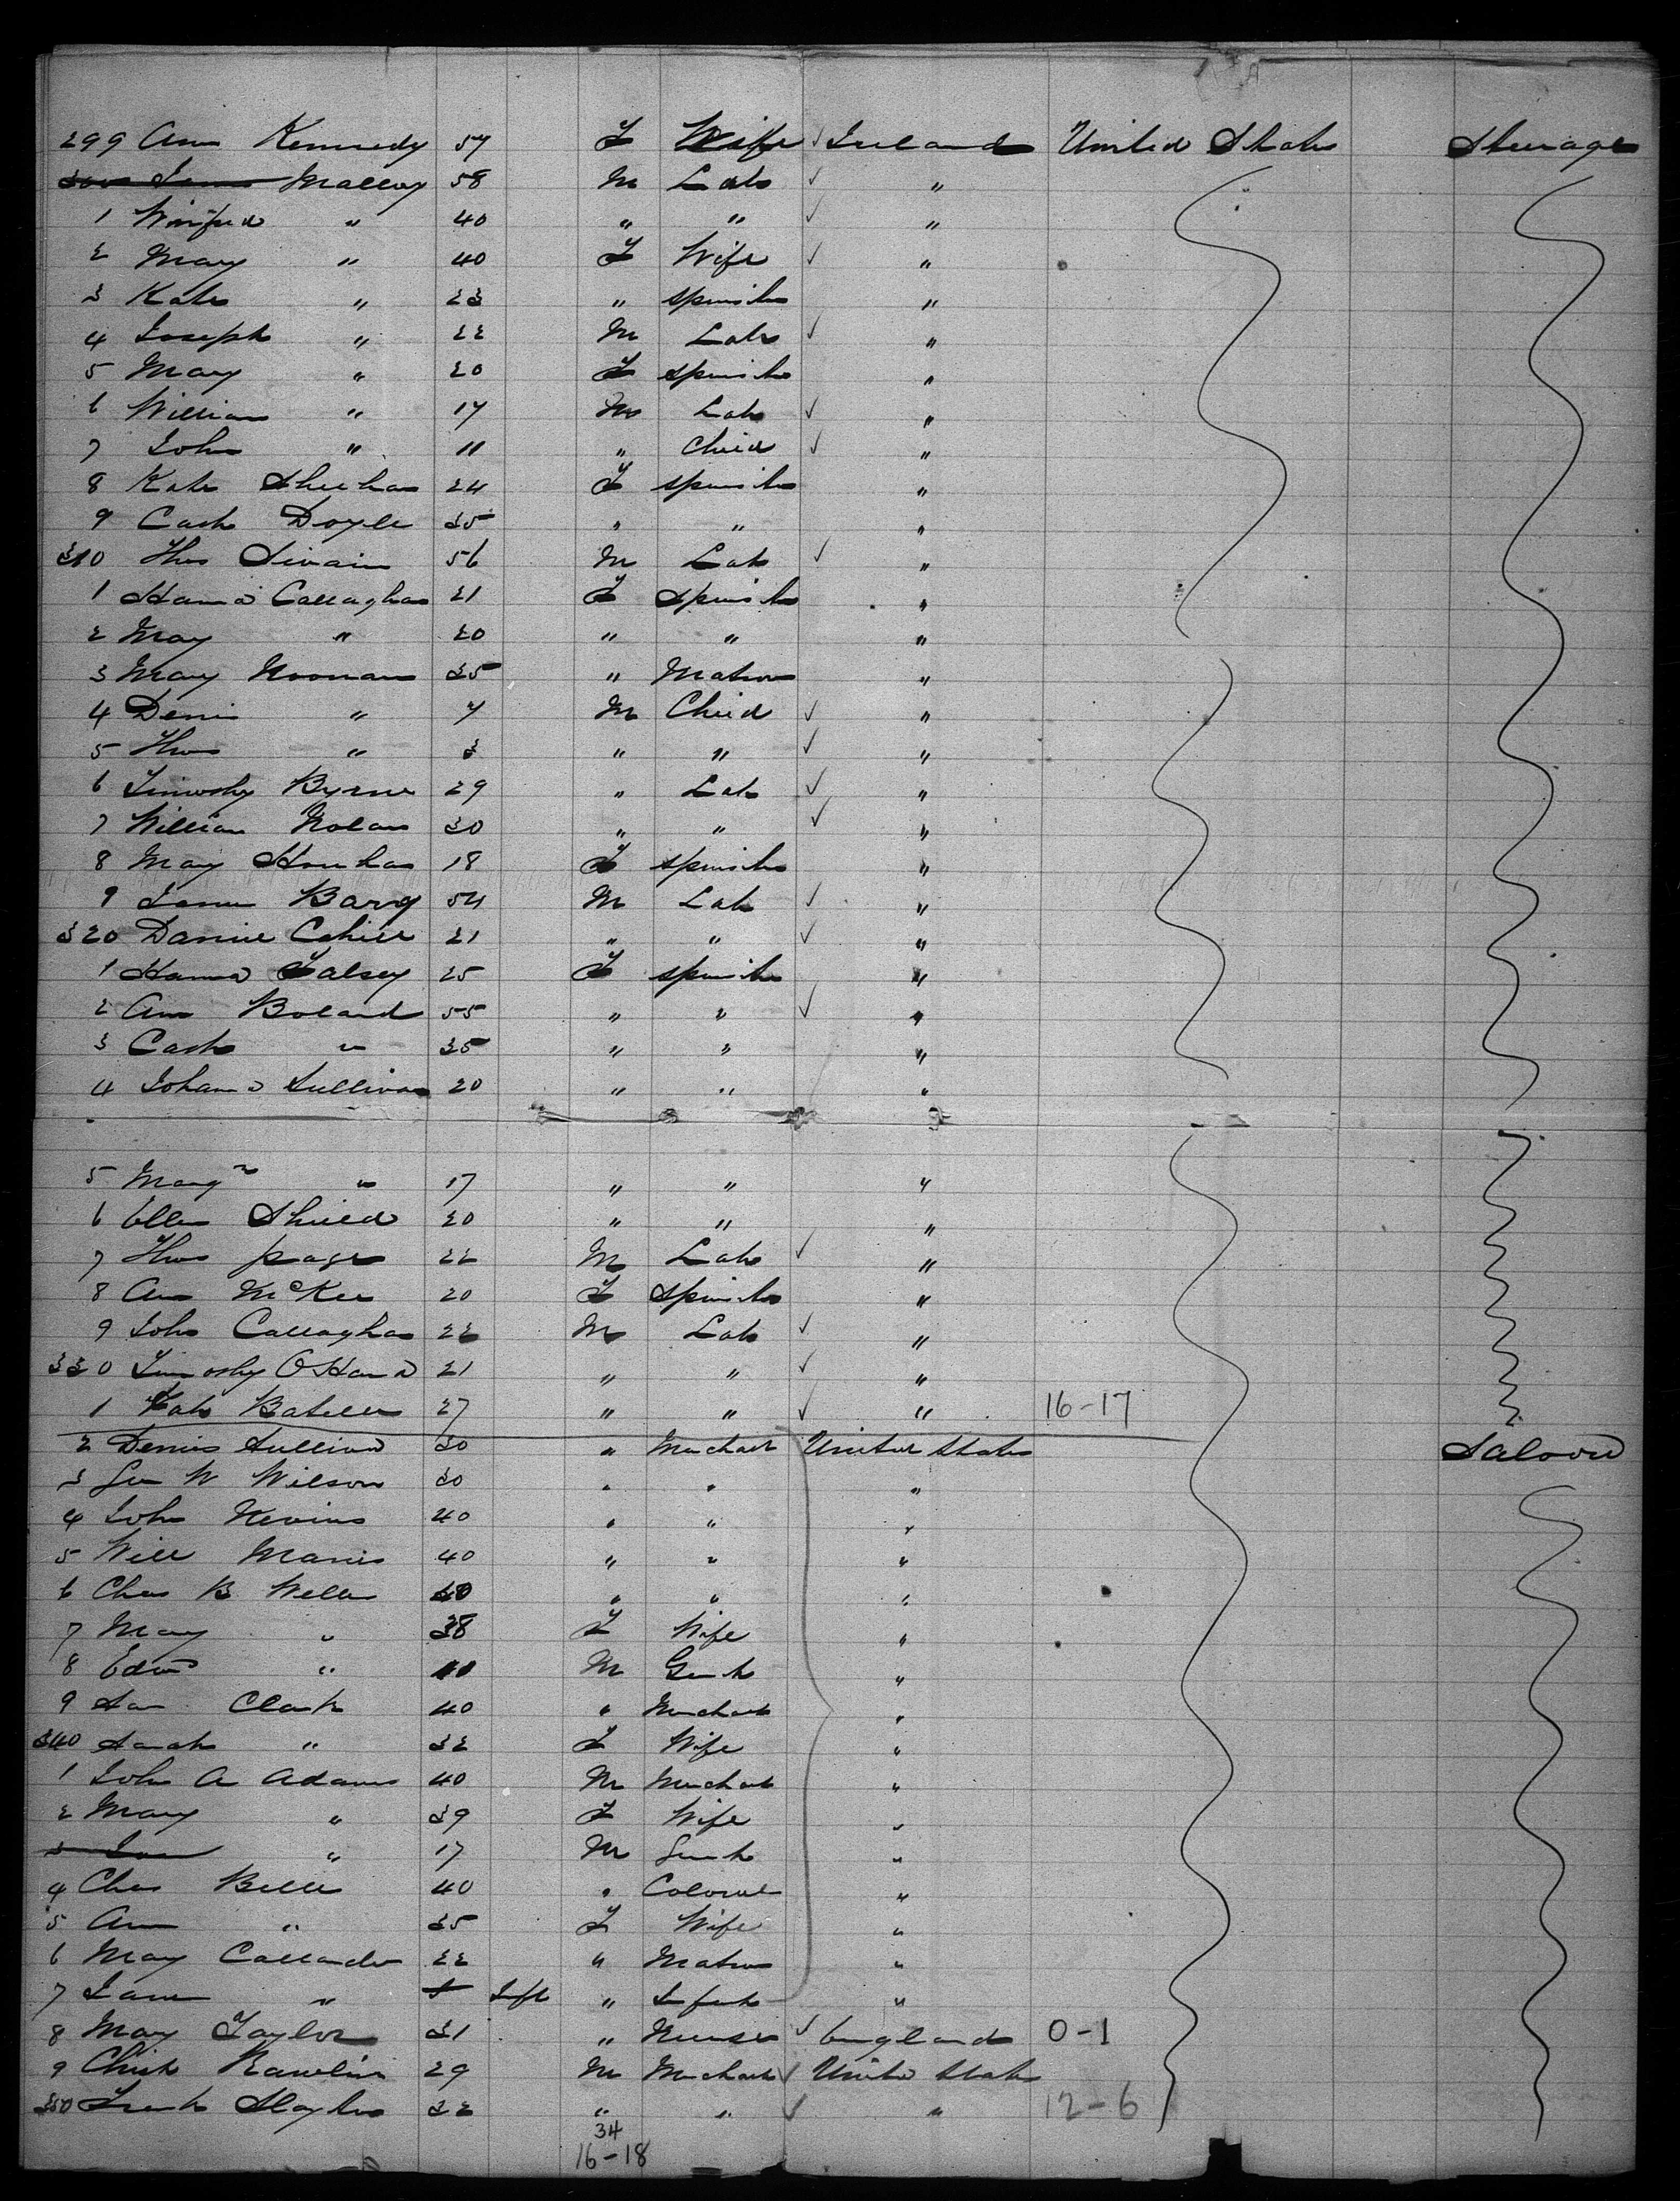 299 Ann Kennedy 57 F Wife ✓ Ireland United States Steerage
300 James Malloy 58 M Lab ✓ "
1 Winfred " 40 " " ✓ "
2 Mary " 40 F Wife ✓ "
3 Kate " 23 " Spinster "
4 Joseph " 22 M Labr ✓ "
5 Mary " 20 F Spinster "
6 William " 17 M Labr ✓ "
7 John " 11 " Child ✓ "
8 Kate Sheehan 24 F Spinster "
9 Cath Doyle 35 " " "
310 Thos 56 M Lab ✓ "
1 Hanna Callaghan 21 F Spinster "
2 Mary " 20 " " "
3 Mary Noonan 35 " Matron "
4 Denis " 7 M Child ✓ "
5 Thos " 3 " " ✓ "
6 Timothy Byrne 29 " Lab ✓ "
7 William Nolan 30 " " ✓ "
8 Mary 18 F Spinster "
9 James Barry 54 M Lab ✓ "
320 Daniel Cahill 21 " " ✓ "
1 Hanna Falsey 25 F Spinster "
2 Ann Boland 55 " " ✓ "
3 Cath " 35 " " "
4 Johanna Sullivan 20 " " "
5 Margt " 17 " " "
6 Ellen Shield 20 " " "
7 Thos Page 22 M Labr ✓ "
8 Ann McKee 20 F Spinster "
9 John Callaghan 22 M Lab ✓ "
330 Timothy O'Hara 21 " " ✓ "
1 27 " " ✓ " 16-17
2 Dennis Sullivan 30 " Merchant United States Saloon
3 Geo W Wilson 30 " " "
4 John Nevins 40 " " "
5 Will 40 " " "
6 Chas B Weller 40 " " "
7 Mary " 38 F Wife "
8 Edwd " 11 M Gent "
9 Clark 40 " Merchant "
340 Sarah " 32 F Wife "
1 John A Adams 40 M Merchant "
2 Mary " 39 F Wife "
3 " 17 M Gent "
4 Chas 40 " Colonel "
5 Ann " 35 F Wife "
6 Mary Callander 22 " Matron "
7 Jane " Inft " Infant "
8 Mary Taylor 31 " Nurse ✓ England 0-1
9 Christ Rawlins 29 M Merchant ✓ United States
350 Frank 22 " " ✓ " 12-6
34
16-18